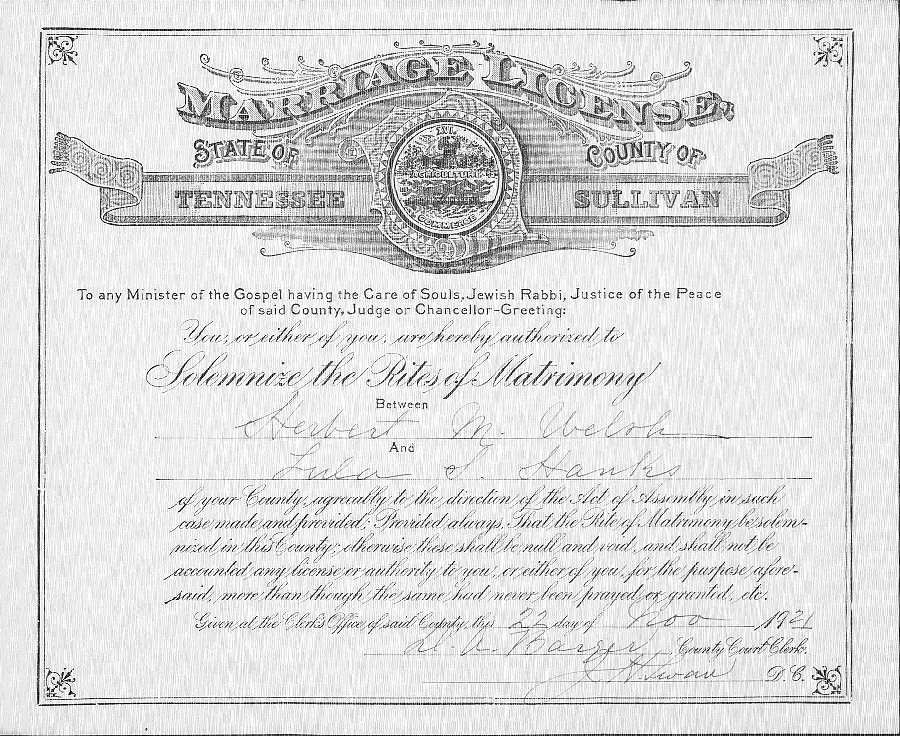 MARRIAGE LICENSE.
STATE OF
COUNTY OF
XVI.
AGRICULTURE
TENNESSEE
SULLIVAN
COMMERCE
To any Minister of the Gospel having the Care of Souls, Jewish Rabbi, Justice of the Peace
of said County, Judge or Chancellor-Greeting:
You, or either of you, are hereby authorized to
Solemnize the Rites of Matrimony
Between
Herbert M. Welch
And
Lula S. Hanks
of your County, agreeably to the direction of the Act of Assembly in such
case made and provided; Provided always, That the Rite of Matrimony be solem-
nized in this County; otherwise these shall be null and void, and shall not be
accounted any license or authority to you, or either of you, for the purpose afore-
said, more than though the same had never been prayed or granted, etc.
Given at the Clerk's Office of said County, this 22 day of Nov 1921
Barger County Court Clerk.
Swan D. C.